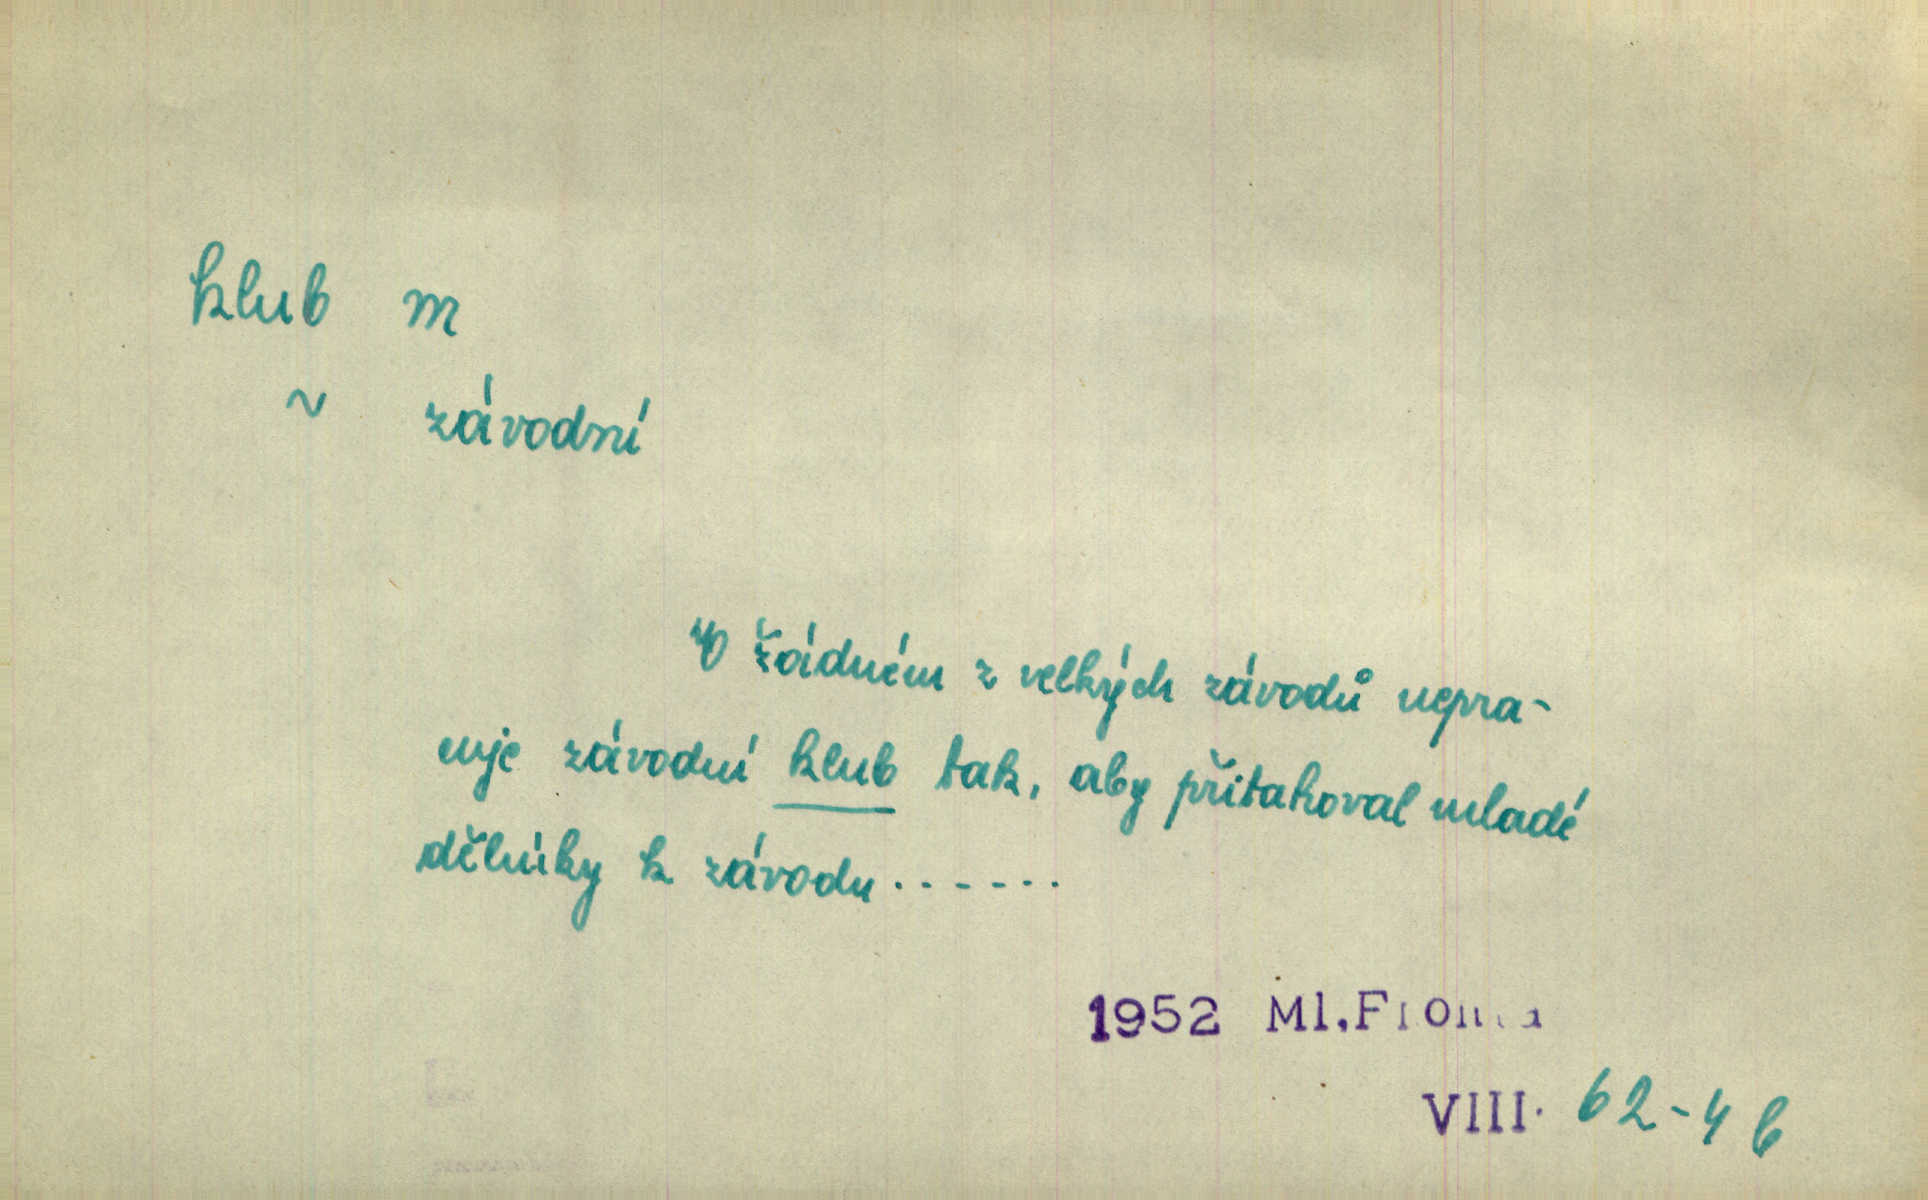 klub m
~ závodní
V žádném z velkých závodů nepra-
cuje závodní klub tak, aby přitahoval mladé
dělníky k závodu.......
1952 Ml.Fronta
VIII. 62-4 b